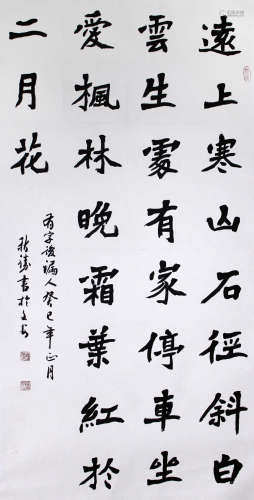 遠上寒山石徑斜白
雲生處有家停車坐
愛楓林晚霜葉紅於
二月花
有字後漏人癸巳年正月
書於